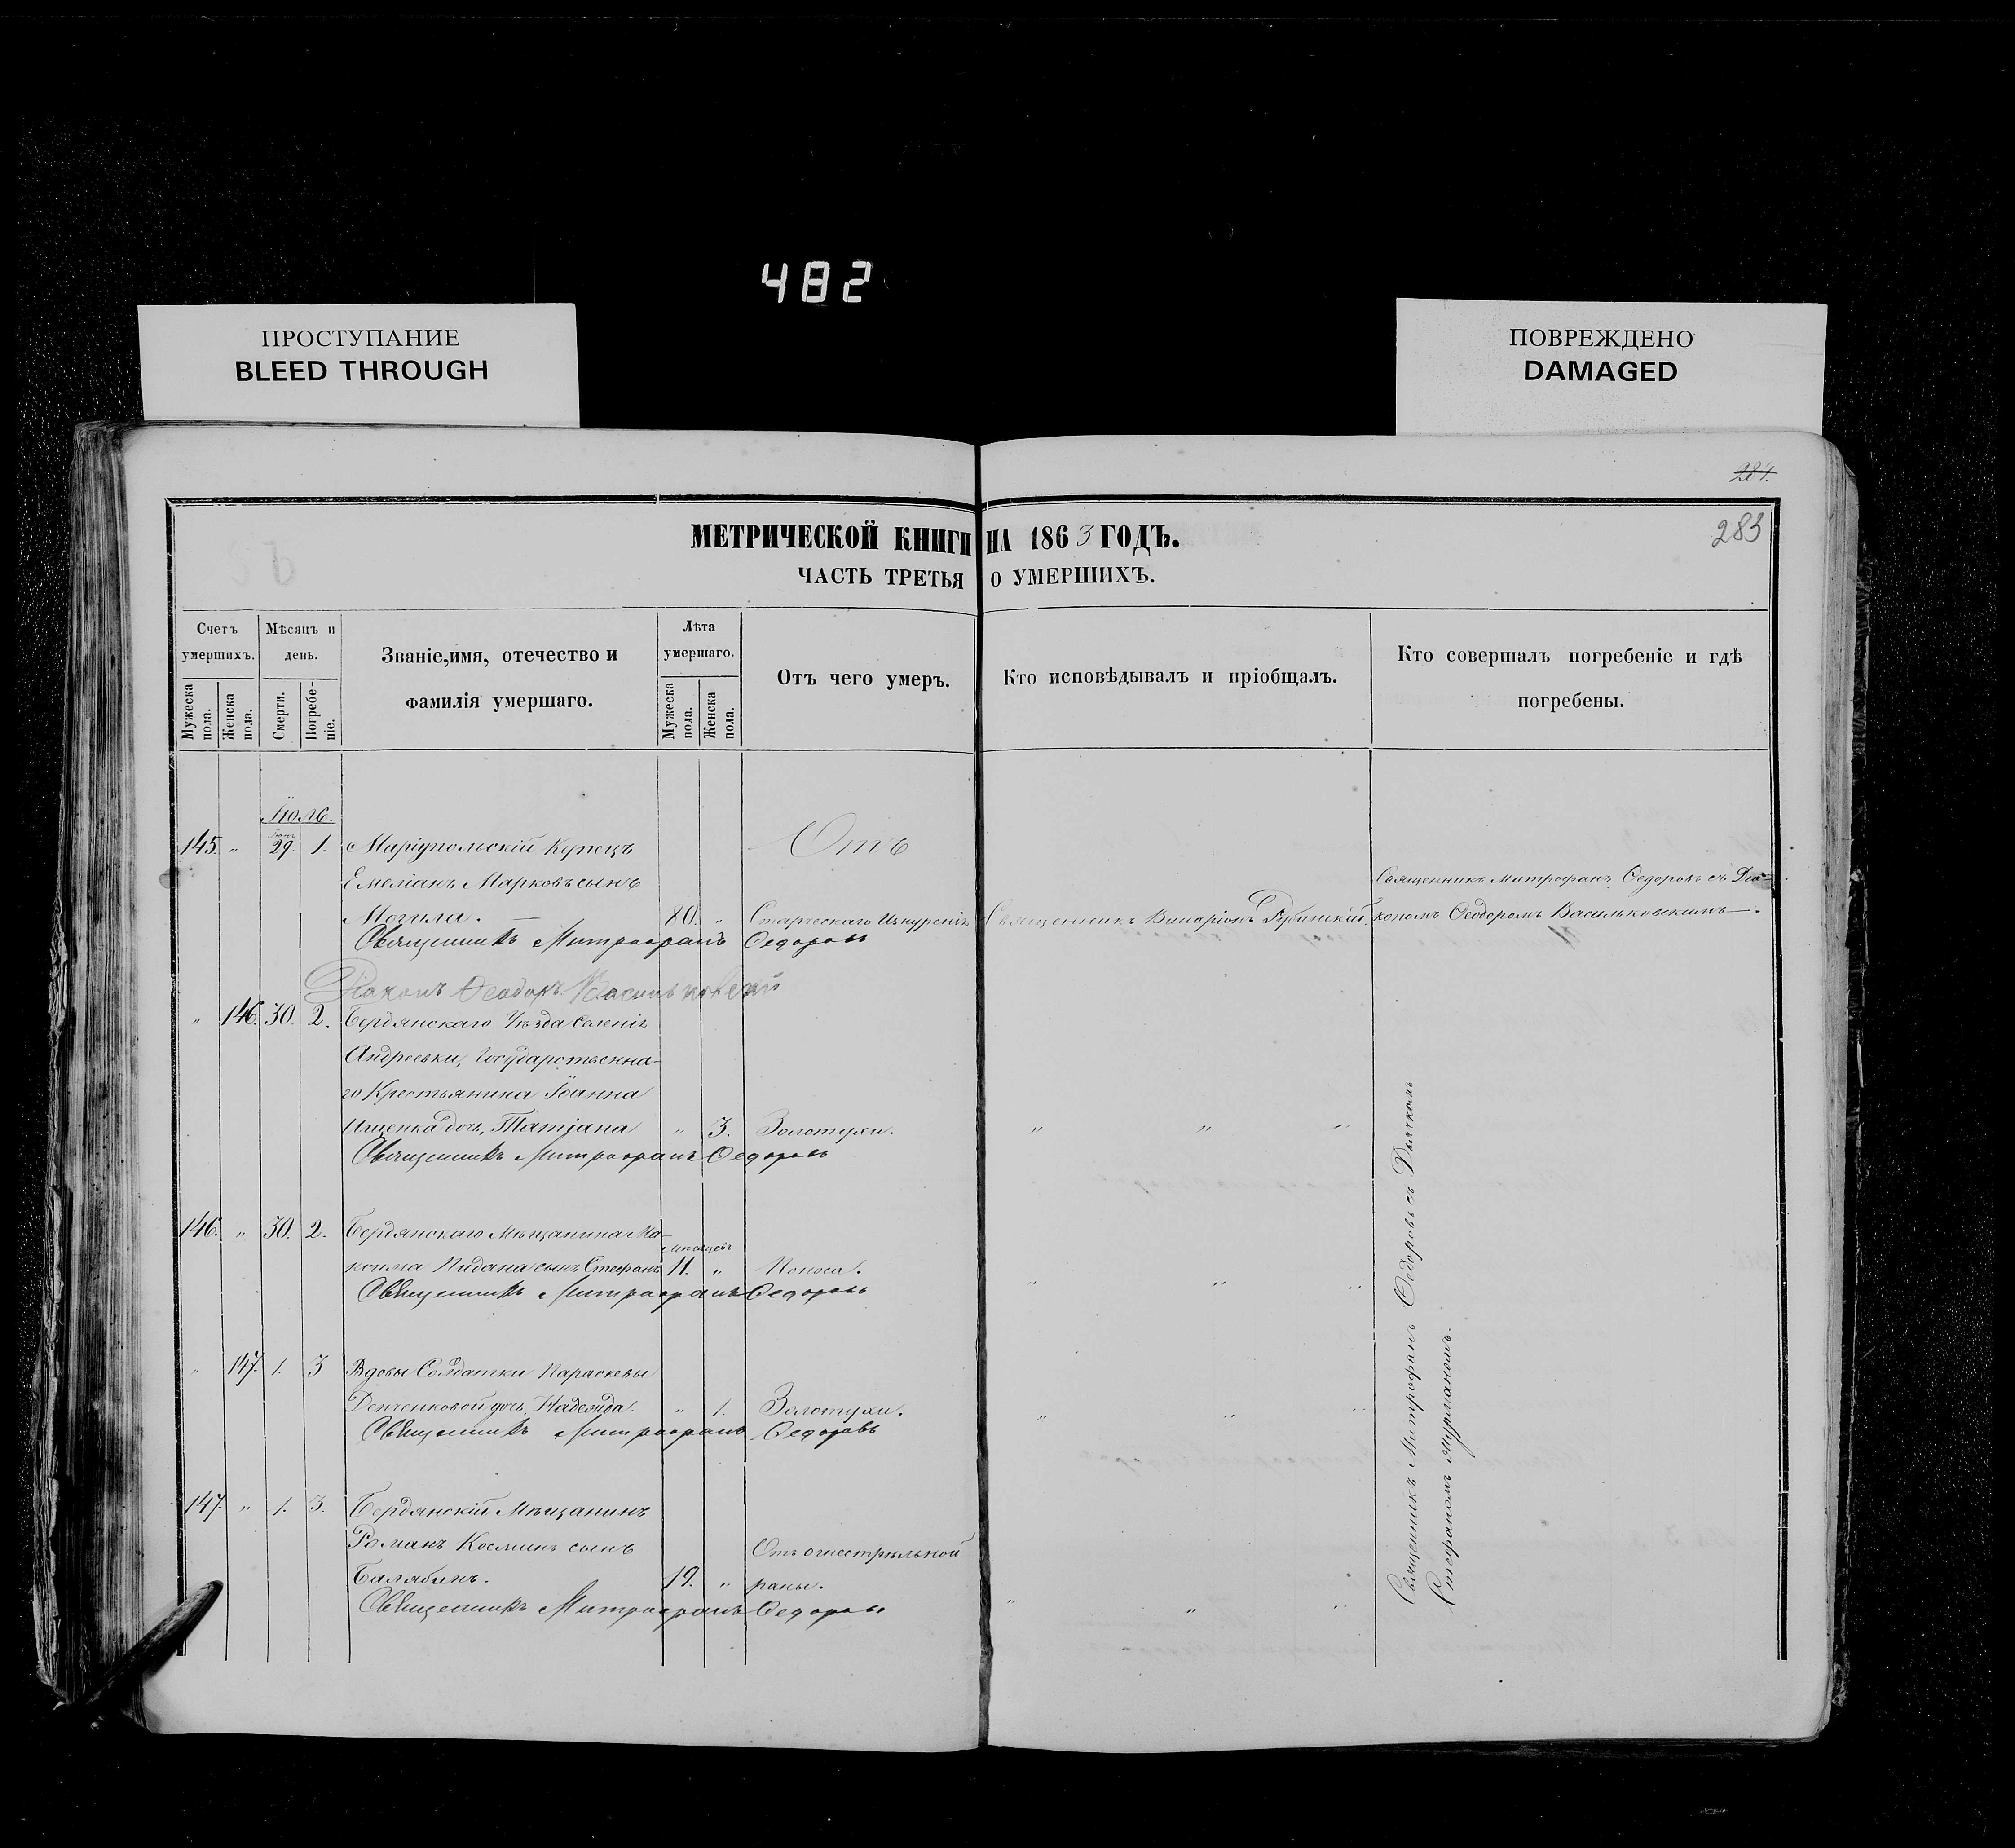 482
ПРОСТУПАНИЕ
BLEED THROUGH
ПОВРЕЖДЕНО
DAMAGED
284.
283
МЕТРИЧЕСКОЙ КНИГИ НА 1863 ГОДЪ.
ЧАСТЬ ТРЕТЬЯ О УМЕРШИХЪ.
Счетъ умершихъ.
Мужеска пола.
Женска пола.
Мѣсяцъ и день.
Смерти.
Погребеніе.
Званіе, имя, отечество и
фамилія умершаго.
Лѣта умершаго.
Мужеска пола.
Женска пола.
Отъ чего умеръ.
Кто исповѣдывалъ и пріобщалъ.
Кто совершалъ погребеніе и гдѣ
погребены.
Іюль.
Іюнь
145. " 29. 1. Маріупольскій Купецъ Отъ
Емеліанъ Марковъ сынъ Священникъ Митрофанъ Ѳедоровъ съ Діа-
Могила. — 80. " Старческаго Изнуренія Священникъ Рубинскій кономъ Ѳеодоромъ Васильковскимъ —.
Священникъ Митрофанъ Ѳедоровъ
Діаконъ Ѳеодоръ Васильковскій
" 146. 30. 2. Бердянскаго Уѣзда Селенія
Андреевки, Государственна-
го Крестьянина Іоанна
Ищенка дочь, Татіана " 3. Золотухи. " " "
Священникъ Митрофанъ Ѳедоровъ
146. " 30. 2. Бердянскаго Мѣщанина Ма-
мѣсяцевъ
ксима Пидана сынъ Стефанъ 11. " Поноса. " " "
Священникъ Митрофанъ Ѳедоровъ
" 147. 1. 3 Вдовы Солдатки Параскевы
Демченковой дочь, Надежда. " 1. Золотухи. " " "
Священникъ Митрофанъ Ѳедоровъ
147. " 1. 3. Бердянскій Мѣщанинъ
Романъ Косминъ сынъ Отъ огнестрѣльной
Балябинъ. 19. " раны. " " "
Священникъ Митрофанъ Ѳедоровъ
Священникъ Митрофанъ Ѳедоровъ съ Дьячкомъ
Стефаномъ Мурманомъ.